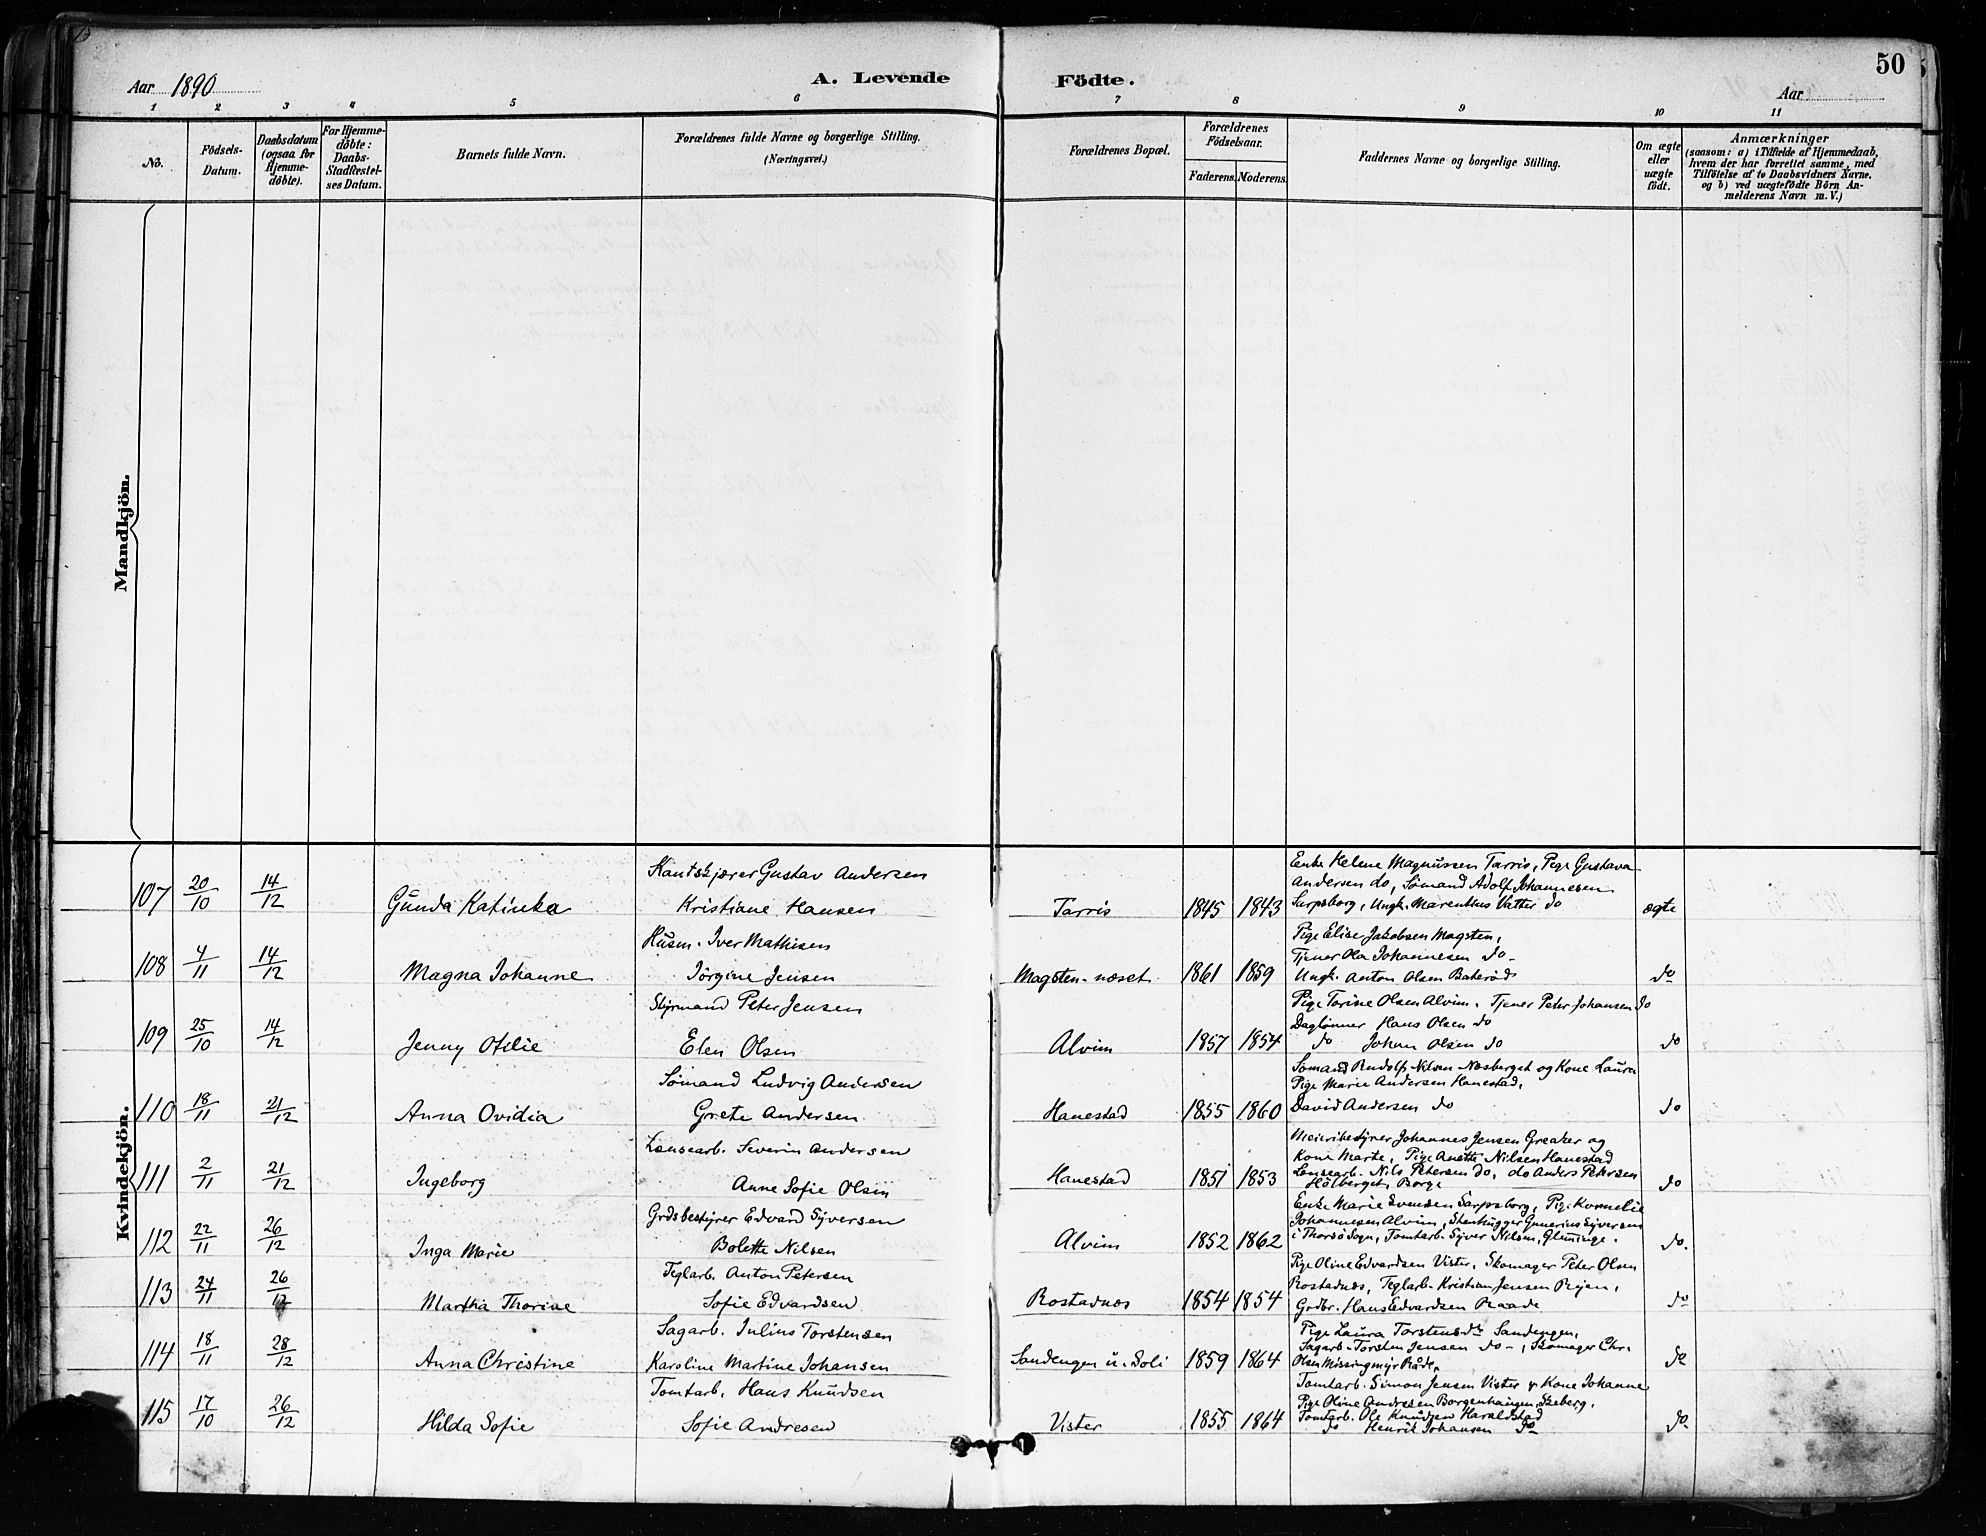 50
Aar 1890
A. Levende Födte.
Aar
1 2 3 4 5 6 7 8 9 10 11
No.
Födsels-Datum.
Daabsdatum (ogsaa for Hjemme-döbte).
For Hjemme-döbte: Daabs-Stadfæstel-ses Datum.
Barnets fulde Navn.
Forældrenes fulde Navne og borgerlige Stilling.
(Næringsvei.)
Forældrenes Bopæl.
Forældrenes Födselsaar.
Faderens. Moderens.
Faddernes Navne og borgerlige Stilling.
Om ægte eller uægte födt.
Anmærkninger
(saasom: a) i Tilfælde af Hjemmedaab,
hvem der har forrettet samme, med
Tilföielse af to Daabsvidners Navne,
og b) ved uægtefödte Börn An-
melderens Navn m. V.)
Mandkjön.
Kvindekjön.
107 20/10 14/12 Gunda Katinka
Kantskjærer Gustav Andersen
Kristiane Hansen
Tarris 1845 1843
Enke Helene Magnussen Tarris, Pige Gustava
Andersen do, Sømand Adolf Johannesen
Sarpsborg, Ungk. Marentius Vatter do
ægte
108 4/11 14/12 Magna Johanne
Husm. Iver Mathisen
Jörgine Jensen
Magsten-næset 1861 1859
Pige Elise Jakobsen Magsten,
Tjener Ola Johannesen do-
Ungk. Anton Olsen Bakerød
do
109 25/10 14/12 Jenny Otilie
Styrmand Peter Jensen
Elen Olsen
Alvim 1857 1854
Pige Torine Olsen Alvim. Tjener Peter Johansen do
Daglønner Hans Olsen do
do Johan Olsen do
do
110 18/11 21/12 Anna Ovidia
Sømand Ludvig Andersen
Grete Andersen
Hanestad 1855 1860
Sømand Rudolf Nilsen Næsberget og Kone Laura
Pige Marie Andersen Hanestad,
David Andersen do
do
111 2/11 21/12 Ingeborg
Lensearb. Severin Andersen
Anne Sofie Olsen
Hanestad 1851 1853
Meieribestyrer Johannes Jensen Greaker og
Kone Marte, Pige Anette Nilsen Hanestad
Lensearb. Nils Petersen do, do Anders Petersen
Holberget, Borge
do
112 22/11 26/12 Inga Marie
Grdsbestyrer Edvard Syversen
Bolette Nilsen
Alvim 1852 1862
Enke Marie Svendsen Sarpsborg, Pige Kornelie
Johannesen Alvim, Stenhugger Gunerius Syversen
i Thorsø Sogn, Tomtarb. Syver Nilsen, Glemminge.
do.
113 24/11 26/12 Martha Thorine
Teglarb. Anton Petersen
Sofie Edvardsen
Rostadnæs 1854 1854
Pige Oline Edvardsen Vister, Skomager Peter Olsen
Rostadnæs, Teglarb. Kristian Jensen Rejen,
Grdbr. Hans Edvardsen Raade
do
114 18/11 28/12 Anna Christine
Sagarb. Julius Torstensen
Karoline Martine Johansen
Sandengen u. Soli 1859 1864
Pige Laura Torstensdr Sandengen,
Sagarb. Torsten Jensen do-, Skomager Chr.
Olsen Missingmyr Råde.
do
115 17/10 26/12 Hilda Sofie
Tomtarb. Hans Knudsen
Sofie Andresen
Vister 1855 1864
Tomtarb. Simon Jensen Vister & Kone Johanne
Pige Oline Andresen Borgenhaugen, Skeberg,
Tomtarb. Ole Knudsen Haraldstad
do Henrik Johansen do
do.